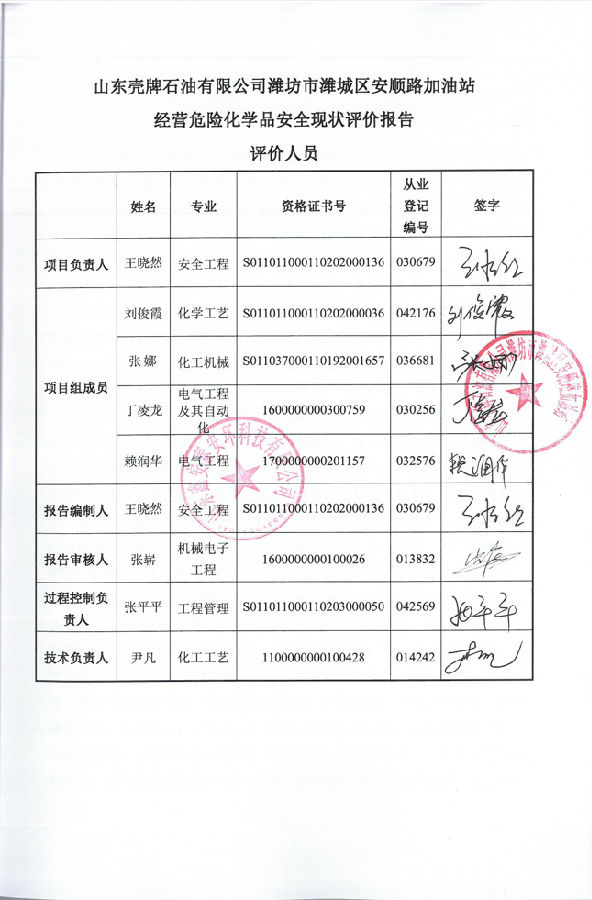 山东壳牌石油有限公司潍坊市潍城区安顺路加油站
经营危险化学品安全现状评价报告
评价人员
姓名 专业 资格证书号 从业登记编号 签字
项目负责人 王晓然 安全工程 S011011000110202000136 030679 王晓然
项目组成员 刘俊霞 化学工艺 S011011000110202000036 042176 刘俊霞
张娜 化工机械 S011037000110192001657 036681 张娜
丁凌龙 电气工程及其自动化 1600000000300759 030256
赖润华 电气工程 1700000000201157 032576 赖润华
报告编制人 王晓然 安全工程 S011011000110202000136 030679 王晓然
报告审核人 张崭 机械电子工程 1600000000100026 013832
过程控制负责人 张平平 工程管理 S011011000110203000050 042569 张平平
技术负责人 尹凡 化工工艺 1100000000100428 014242